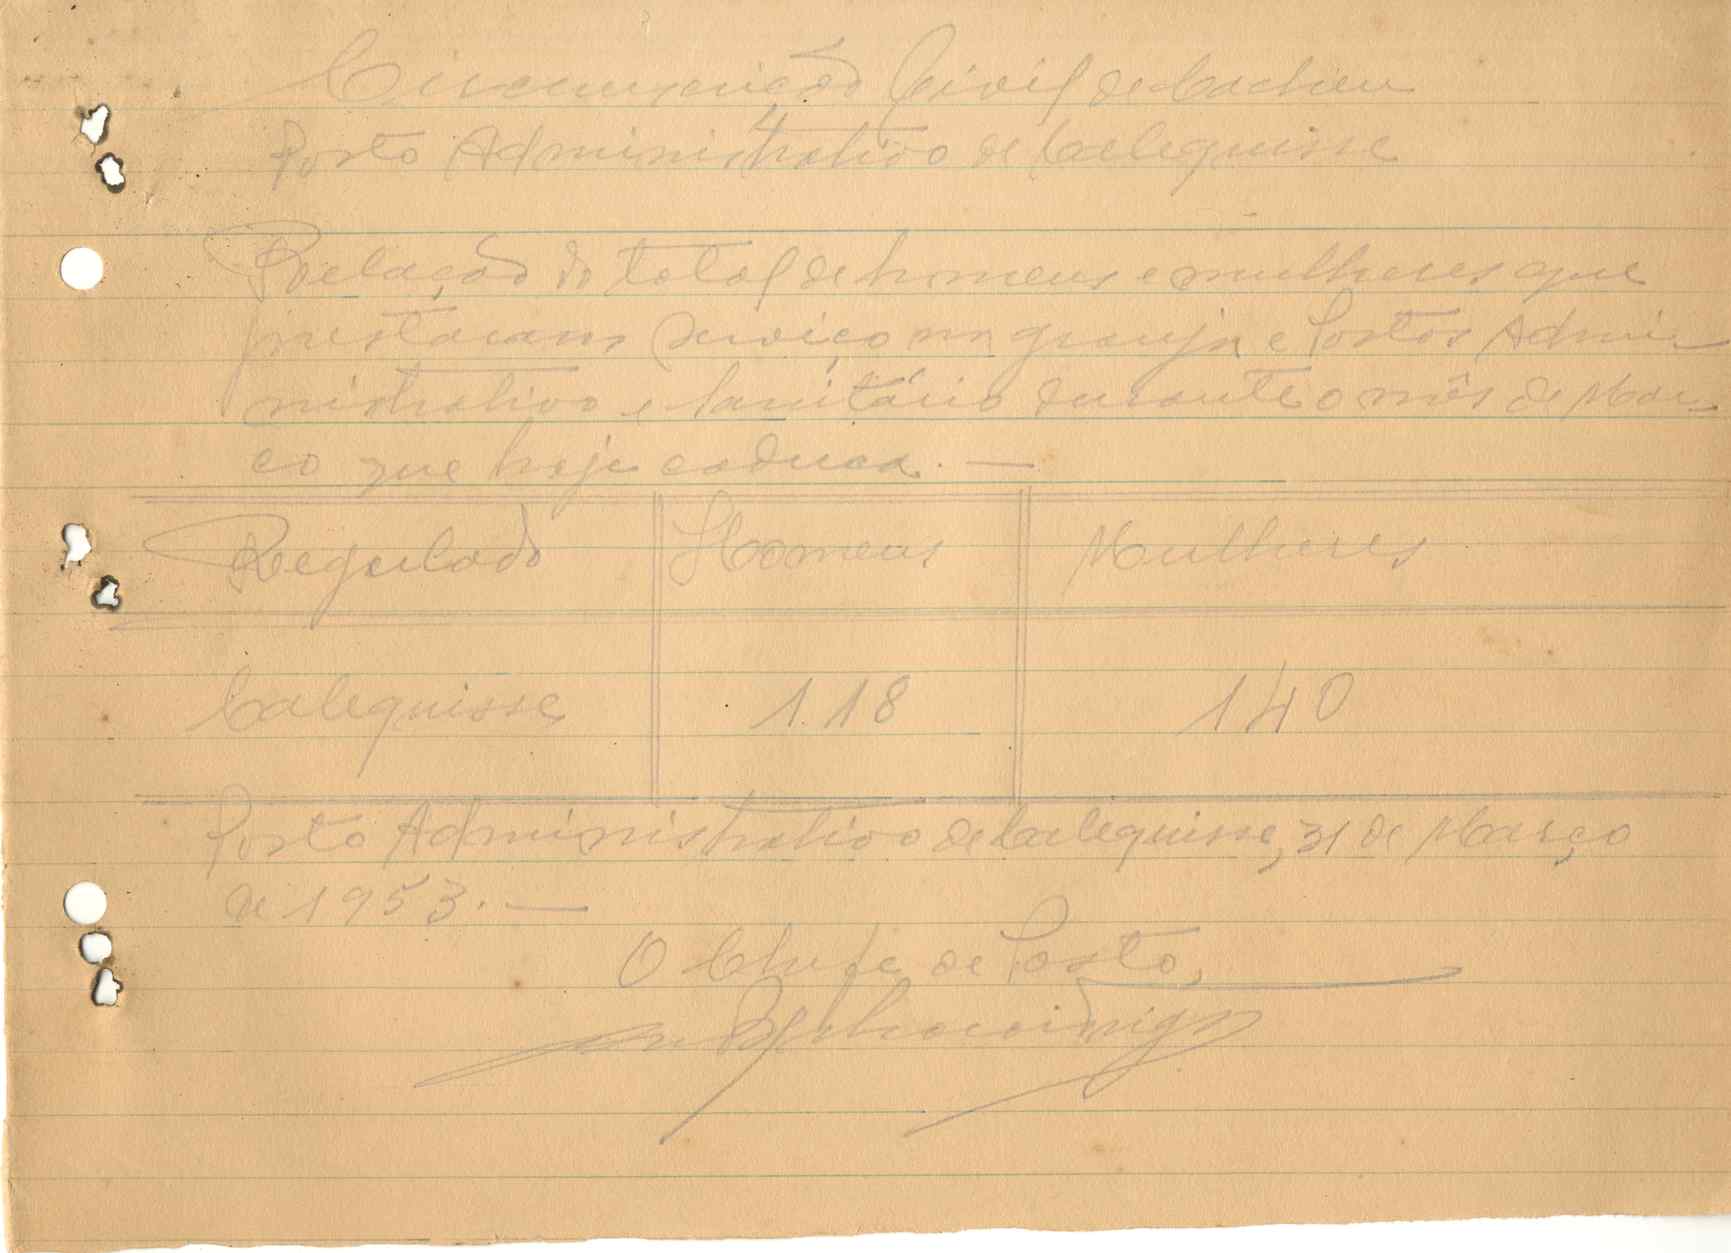 Circunscrição Civil de Cacheu
Posto Administrativo de Calequisse
Relação do total de homens e mulheres que
prestaram serviço na granja e Postos Admi-
nistrativo e Sanitário durante o mês de Mar-
ço que hoje caduca. —
Regulado Homens Mulheres
Calequisse 118 140
Posto Administrativo de Calequisse, 31 de Março
de 1953. —
O Chefe de Posto,